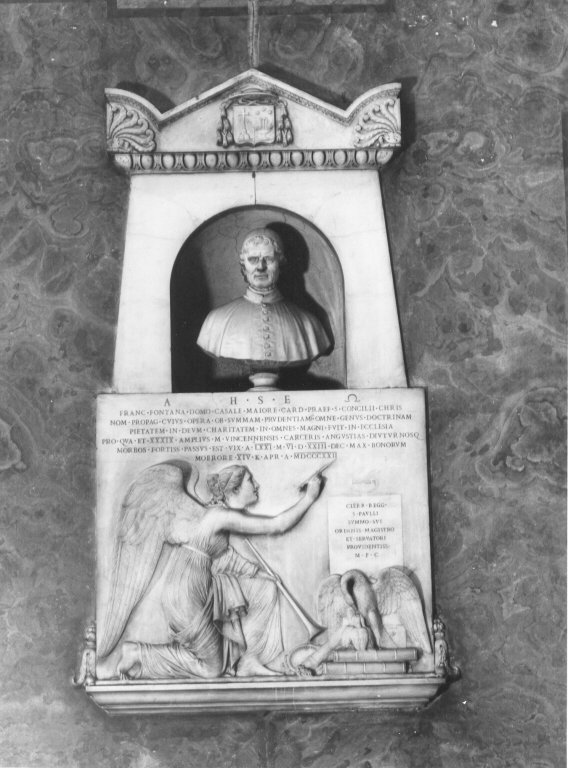 A · H · S · E · Ω
FRANC · FONTANA · DOMO · CASALE · MAIORE · CARD · PRAEF · S · CONCILII · CHRIS
NOM · PROPAG · CVIVS · OPERA · OB · SVMMAM · PRVDENTIAM · OMNE · GENVS · DOCTRINAM
PIETATEM · IN · DEVM · CHARITATEM · IN · OMNES · MAGNI · FVIT · IN · ECCLESIA
PRO · QVA · ET · XXXIX · AMPLIVS · M · VINCENNENSIS · CARCERIS · ANGVSTIAS · DIVTVRNOSQ
MORBOS · FORTISS · PASSVS · EST · VIX · A · LXXI · M · VI · D · XXIII · DEC · MAX · BONORVM
MOERORE · XIV · K · APR · A · MDCCCXXII
CLERR · REGG ·
S · PAVLLI
SVMMO · SVI
ORDINIS · MAGISTRO
ET · SERVATORI
PROVIDENTISS ·
M · P · C ·